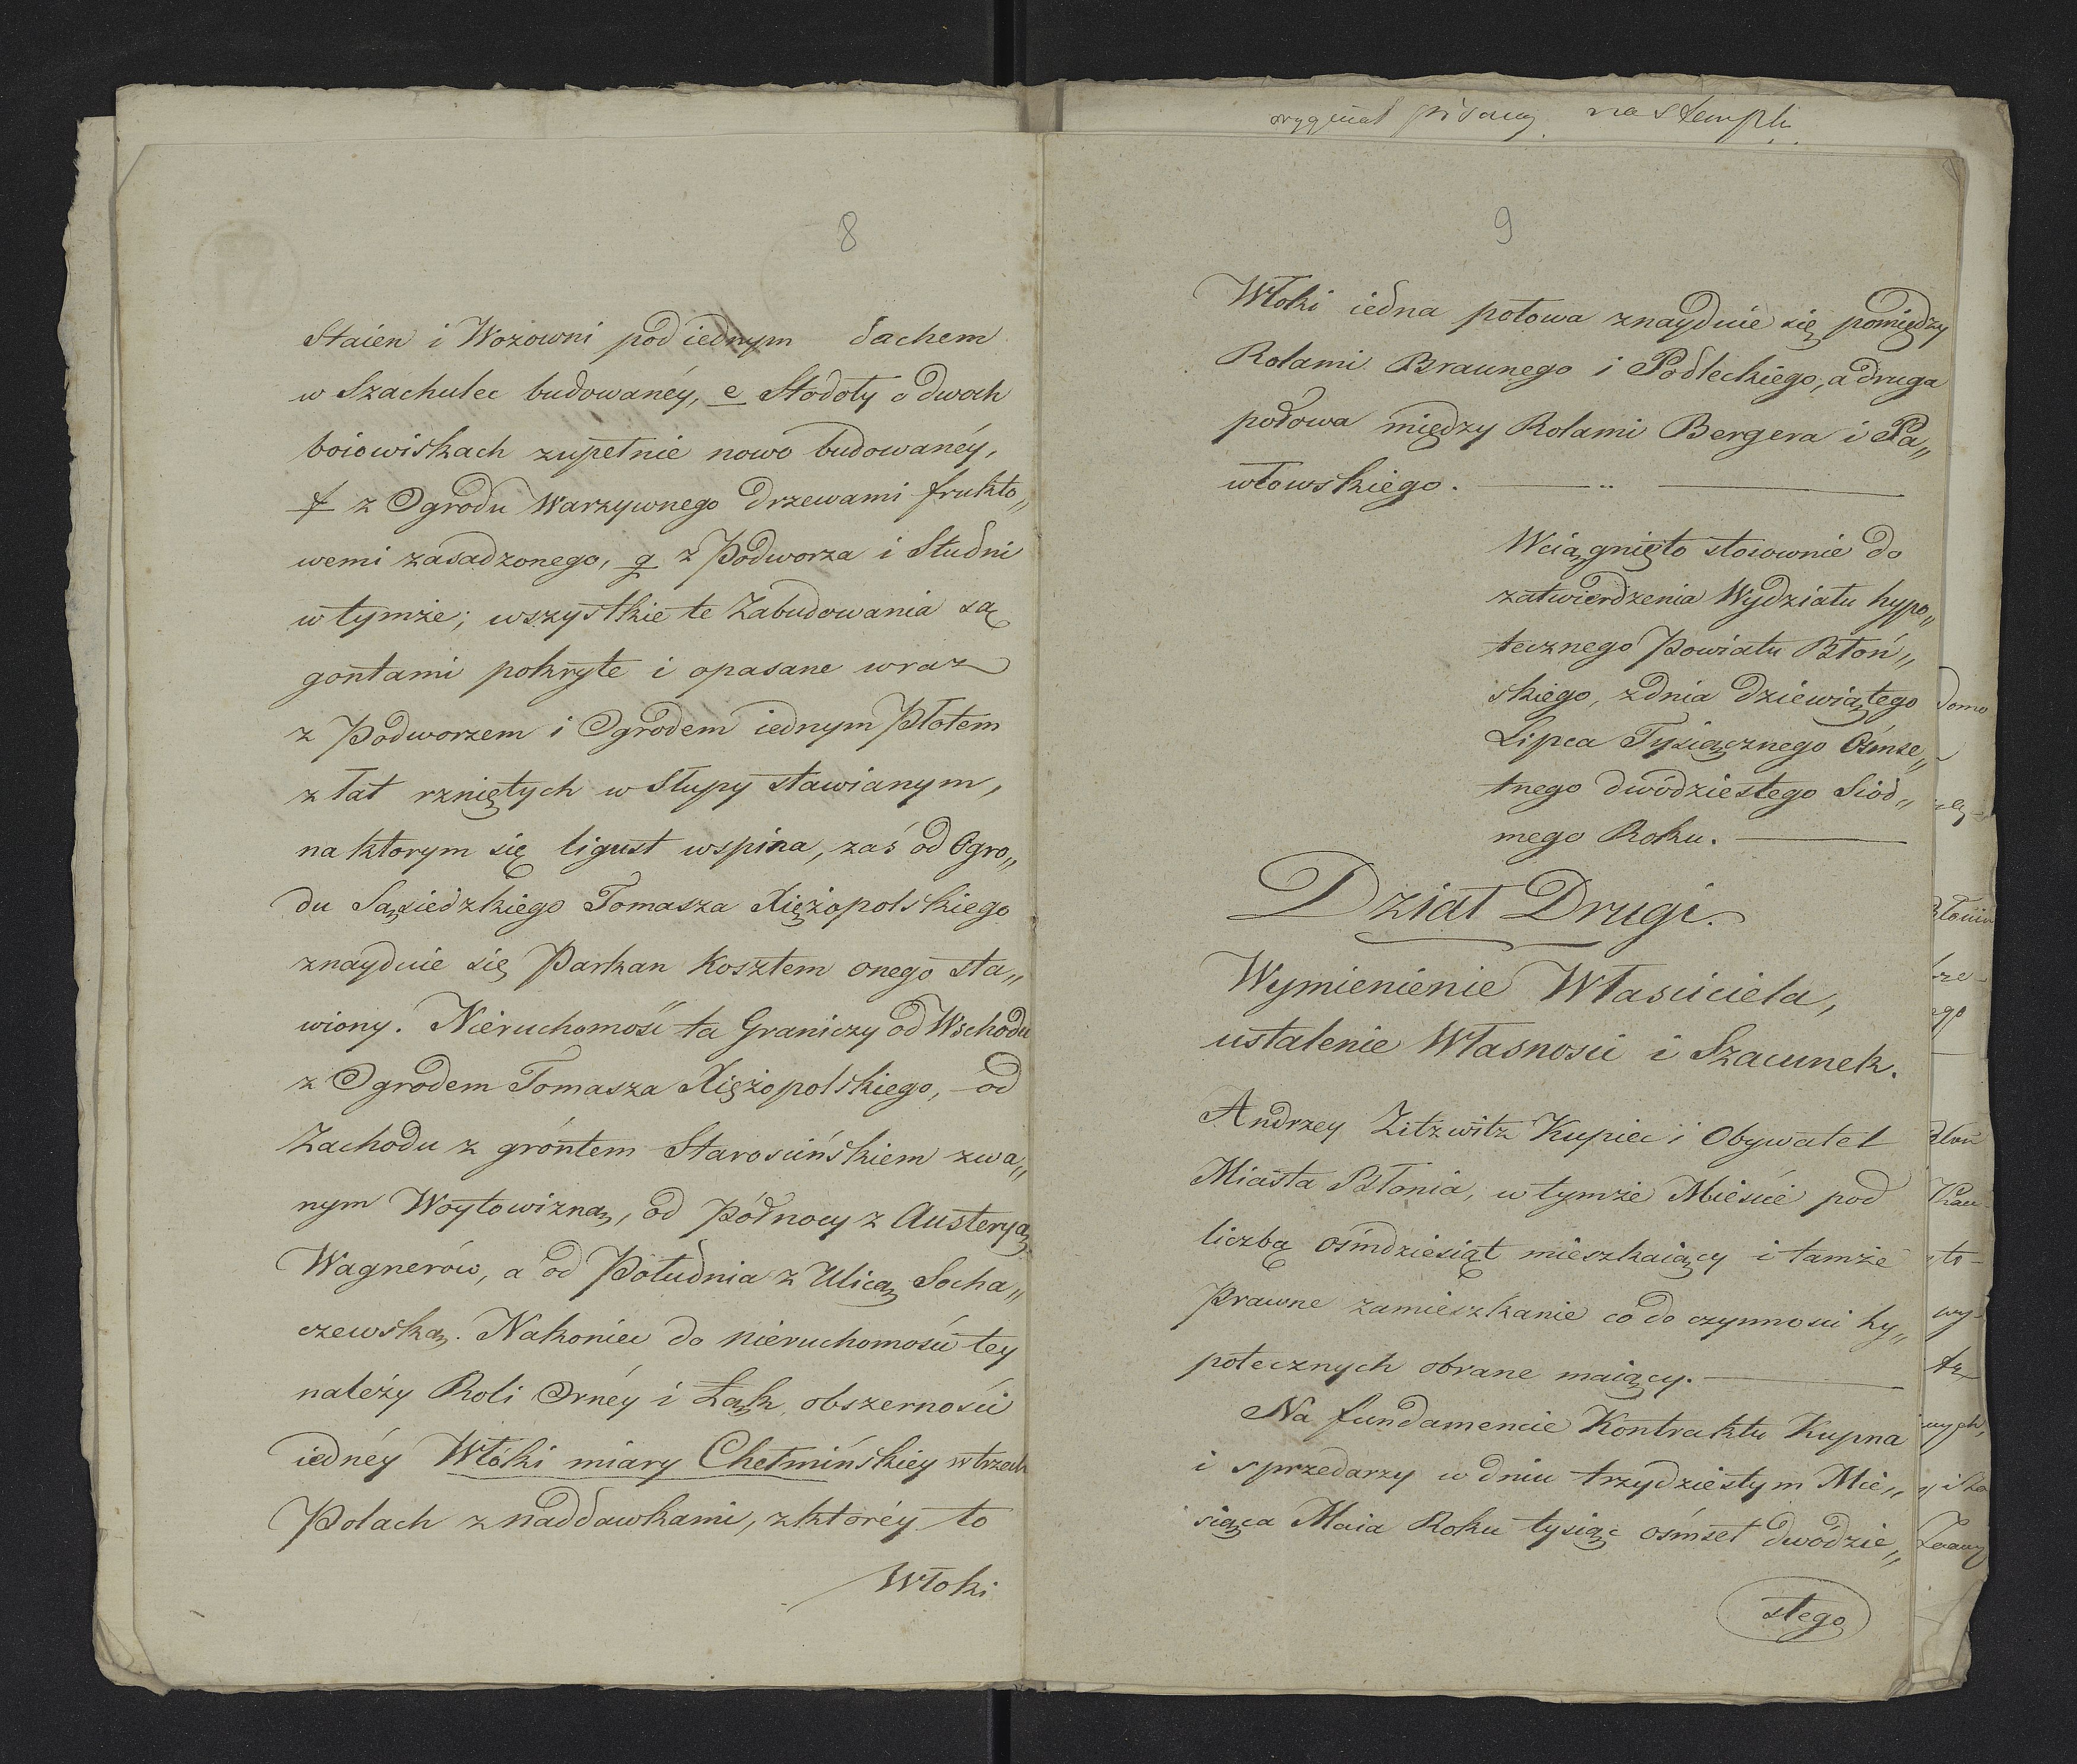 8
Staien i Wozowni pod iednym dachem
w Szachulec budowanéy, e Stodoły o dwoch
boiowiskach zupełnie nowo budowanéy,
f z Ogrodu Warzywnego drzewami frukto„
wemi zasadzonego, g z Podworza i Studni
w tymże; wszystkie te Zabudowania są
gontami pokryte i opasane wraz
z Podworzem i Ogrodem iednym Płotem
z łat rzniętych w Słupy stawianym,
na ktorym się ligust wspina, zaś od Ogro„
du Sąsiedzkiego Tomasza Xiężopolskiego
znayduie się Parkan kosztem onego sta„
wiony. Nieruchomość ta Graniczy od Wschodu
z Ogrodem Tomasza Xiężopolskiego, od
Zachodu z gróntem Starosćińskiem zwa„
nym Woytowizną, od Północy z Austeryą
Wagnerów, a od Południa z Ulicą Socha„
czewską. Nakoniec do nieruchomości tey
należy Roli Ornéy i Łąk, obszerności
iednéy Włóki miary Chełmińskiey w trzech
Polach z naddawkami, z któréy to
Włoki
oryginał pisany na stempli
9
Włoki iedna połowa znayduie się pomiędzy
Rolami Braunego i Podleckiego, a druga
połowa między Rolami Bergera i Pa„
włowskiego.
Wciągnięto stosownie do
zatwierdzenia Wydziału hypo„
tecznego Powiatu Błoń„
skiego, z dnia dziewiątego
Lipca Tysiącznego Ośmse„
tnego dwódziestego Siód„
mego Roku.
Dział Drugi.
Wymienienie Właściciela,
ustalenie Własności i Szacunek.
Andrzey Zitzwitz Kupiec i Obywatel
Miasta Błonia, w tymże Mieście pod
liczbą ośmdziesiąt mieszkaiący i tamże
Prawne zamieszkanie co do czynności hy„
potecznych obrane maiący.
Na fundamencie Kontraktu Kupna
i sprzedarzy w dniu trzydziestym Mie„
siąca Maia Roku tysiąc ośmset dwódzie„
stego